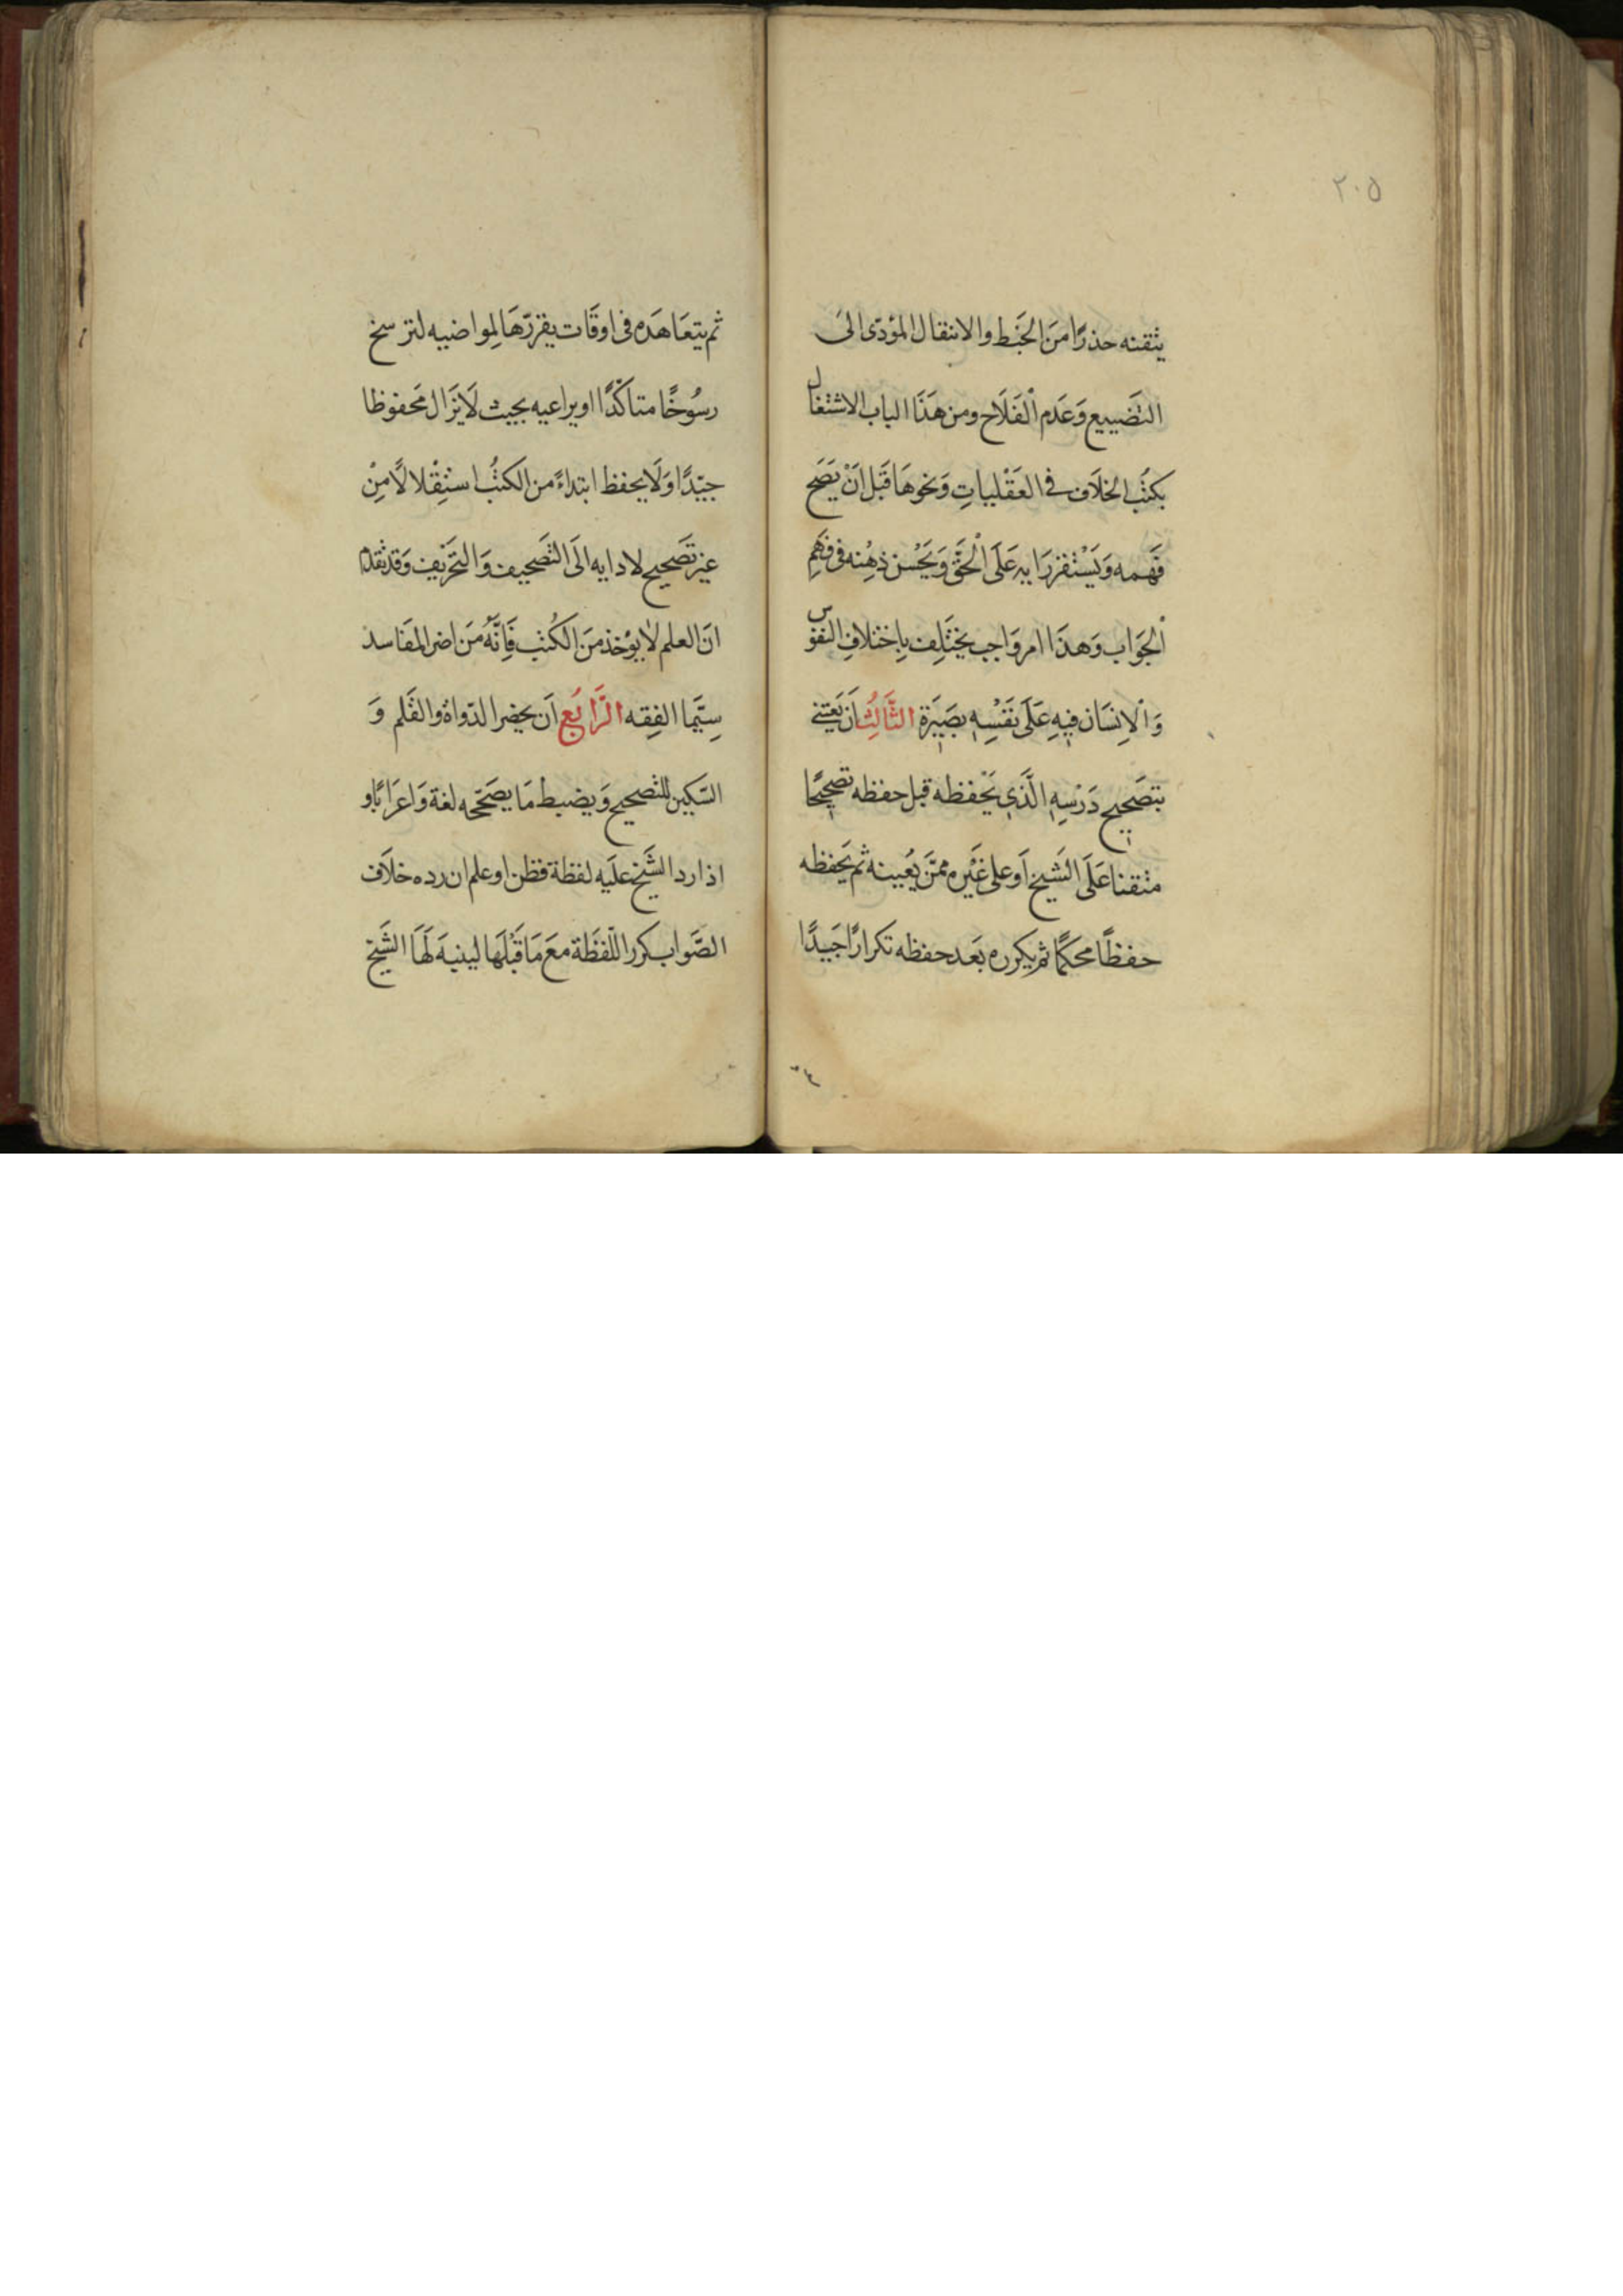 ٢٠٥
يتقنه حذرًا منَ الخَبط والانتقال المؤدّى الىَ
التضَييع وَعَدم الْفَلَاح ومن هَذَا الباب الاشتغال
بكتُب الخلَاف في العَقْليياتِ وَنحوهَا قَبل انْ يَصَح
فَهمه وَيَسْتقر رَايه عَلَى الْحقّ وَيَحْسن ذهْنه فى فَهمِ
الْجَوَاب وَهذَا امر وَاجب يختَلِف بِاختلافِ النفوس
وَالْاِنسَان فيهِ عَلَى نَفْسِهِ بصَيَرة الثَّالِثُ اَن يَعتنے
بتصَحيحِ دَرْسِهِ الَّذى يَحْفظه قبل حفظه تصحيحًا
متقنا عَلَى الشَيخ اَو على غَيْره ممّنَ يُعيينه ثم يَحفظه
حفظًا محكمًا ثم يكرره بَعد حفظه تكرارًا جَيدًا
ثم يتعَاهَده فى اوقَات يقررّهَا لِمواضيه لتر سخ
رسُوخًا متاكّدًا او يراعيه بحيث لَا يزَال مَحفوظا
جيّدًا وَلَا يحفظ ابتداءً من الكتُب استِقْلالًا مِنْ
غير تصَحيح لادايه الَى التصَحيف وَالتحَرْيف وَقد تقدم
انَ العلم لا يؤخذ منَ الكُتب فَاِنَّهُ مَن اضر المفَاسد
سِيَّما الفِقه الرَّابَع اَن يحضر الدّواة والقَلم وَ
السّكين للتّصحيح وَيضبط مَا يصَحّحه لغة وَاعرَابًا و
اذا رد الشَيخ علَيه لفظة فظن او علم ان رده خلَاف
الصَّواب كرر اللّفظَة معَ مَا قَبْلَهَا لينبهَ لَهَا الشَيخ